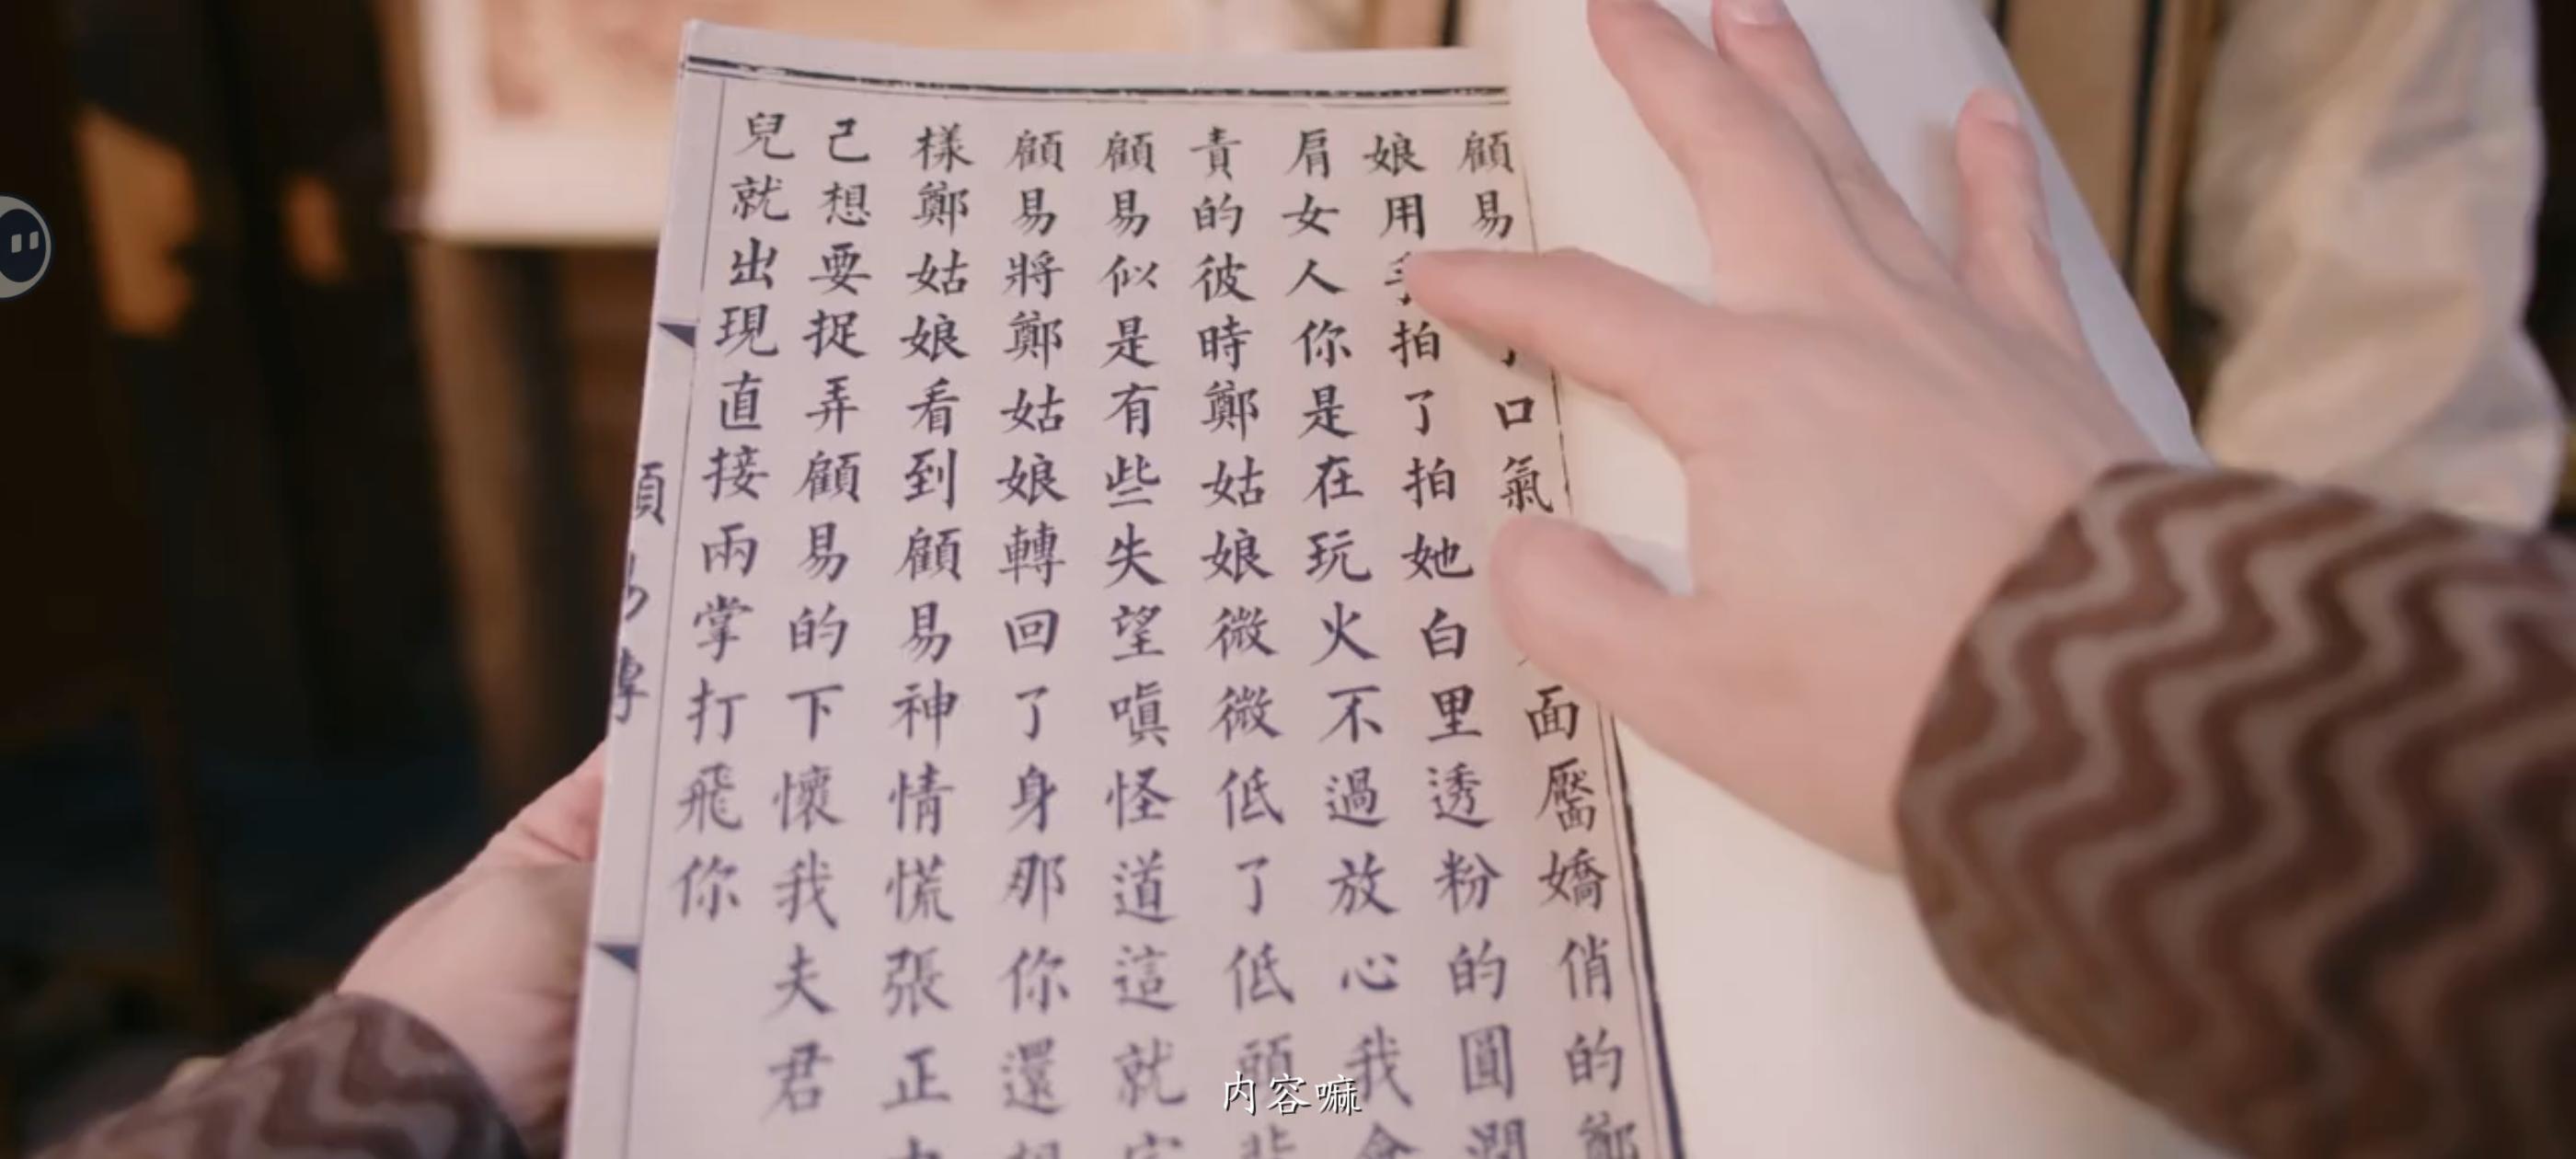 顧易口氣面靨嬌俏的鄭
娘用手拍了拍她白里透粉的圓潤
肩女人你是在玩火不過放心我會
責的彼時鄭姑娘微微低了低頭
顧易似是有些失望嗔怪道這就
顧易將鄭姑娘轉回了身那你還想
樣鄭姑娘看到顧易神情慌張正
己想要捉弄顧易的下懷我夫君
兒就出現直接兩掌打飛你
内容嘛